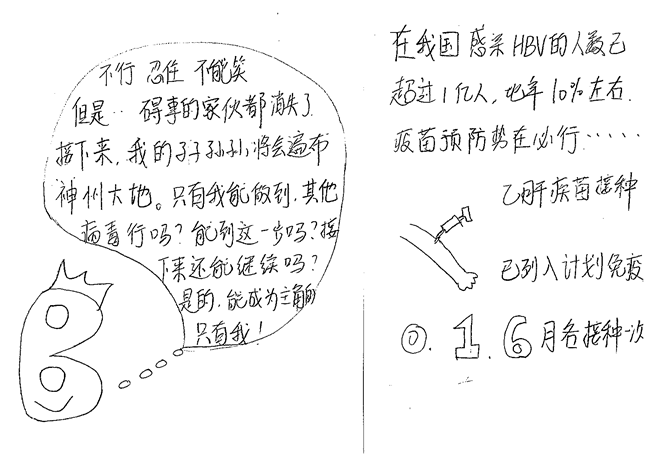 不行 忍住 不能笑
但是… 碍事的家伙都消失了
接下来,我的子子孙孙,将会遍布
神州大地。只有我能做到,其他
病毒行吗?能到这一步吗?接
下来还能继续吗?
是的,能成为主角的
只有我!
B
在我国感染HBV的人数已
超过1亿人,占10%左右.
疫苗预防势在必行……
乙肝疫苗接种
已列入计划免疫
0. 1. 6月各接种一次